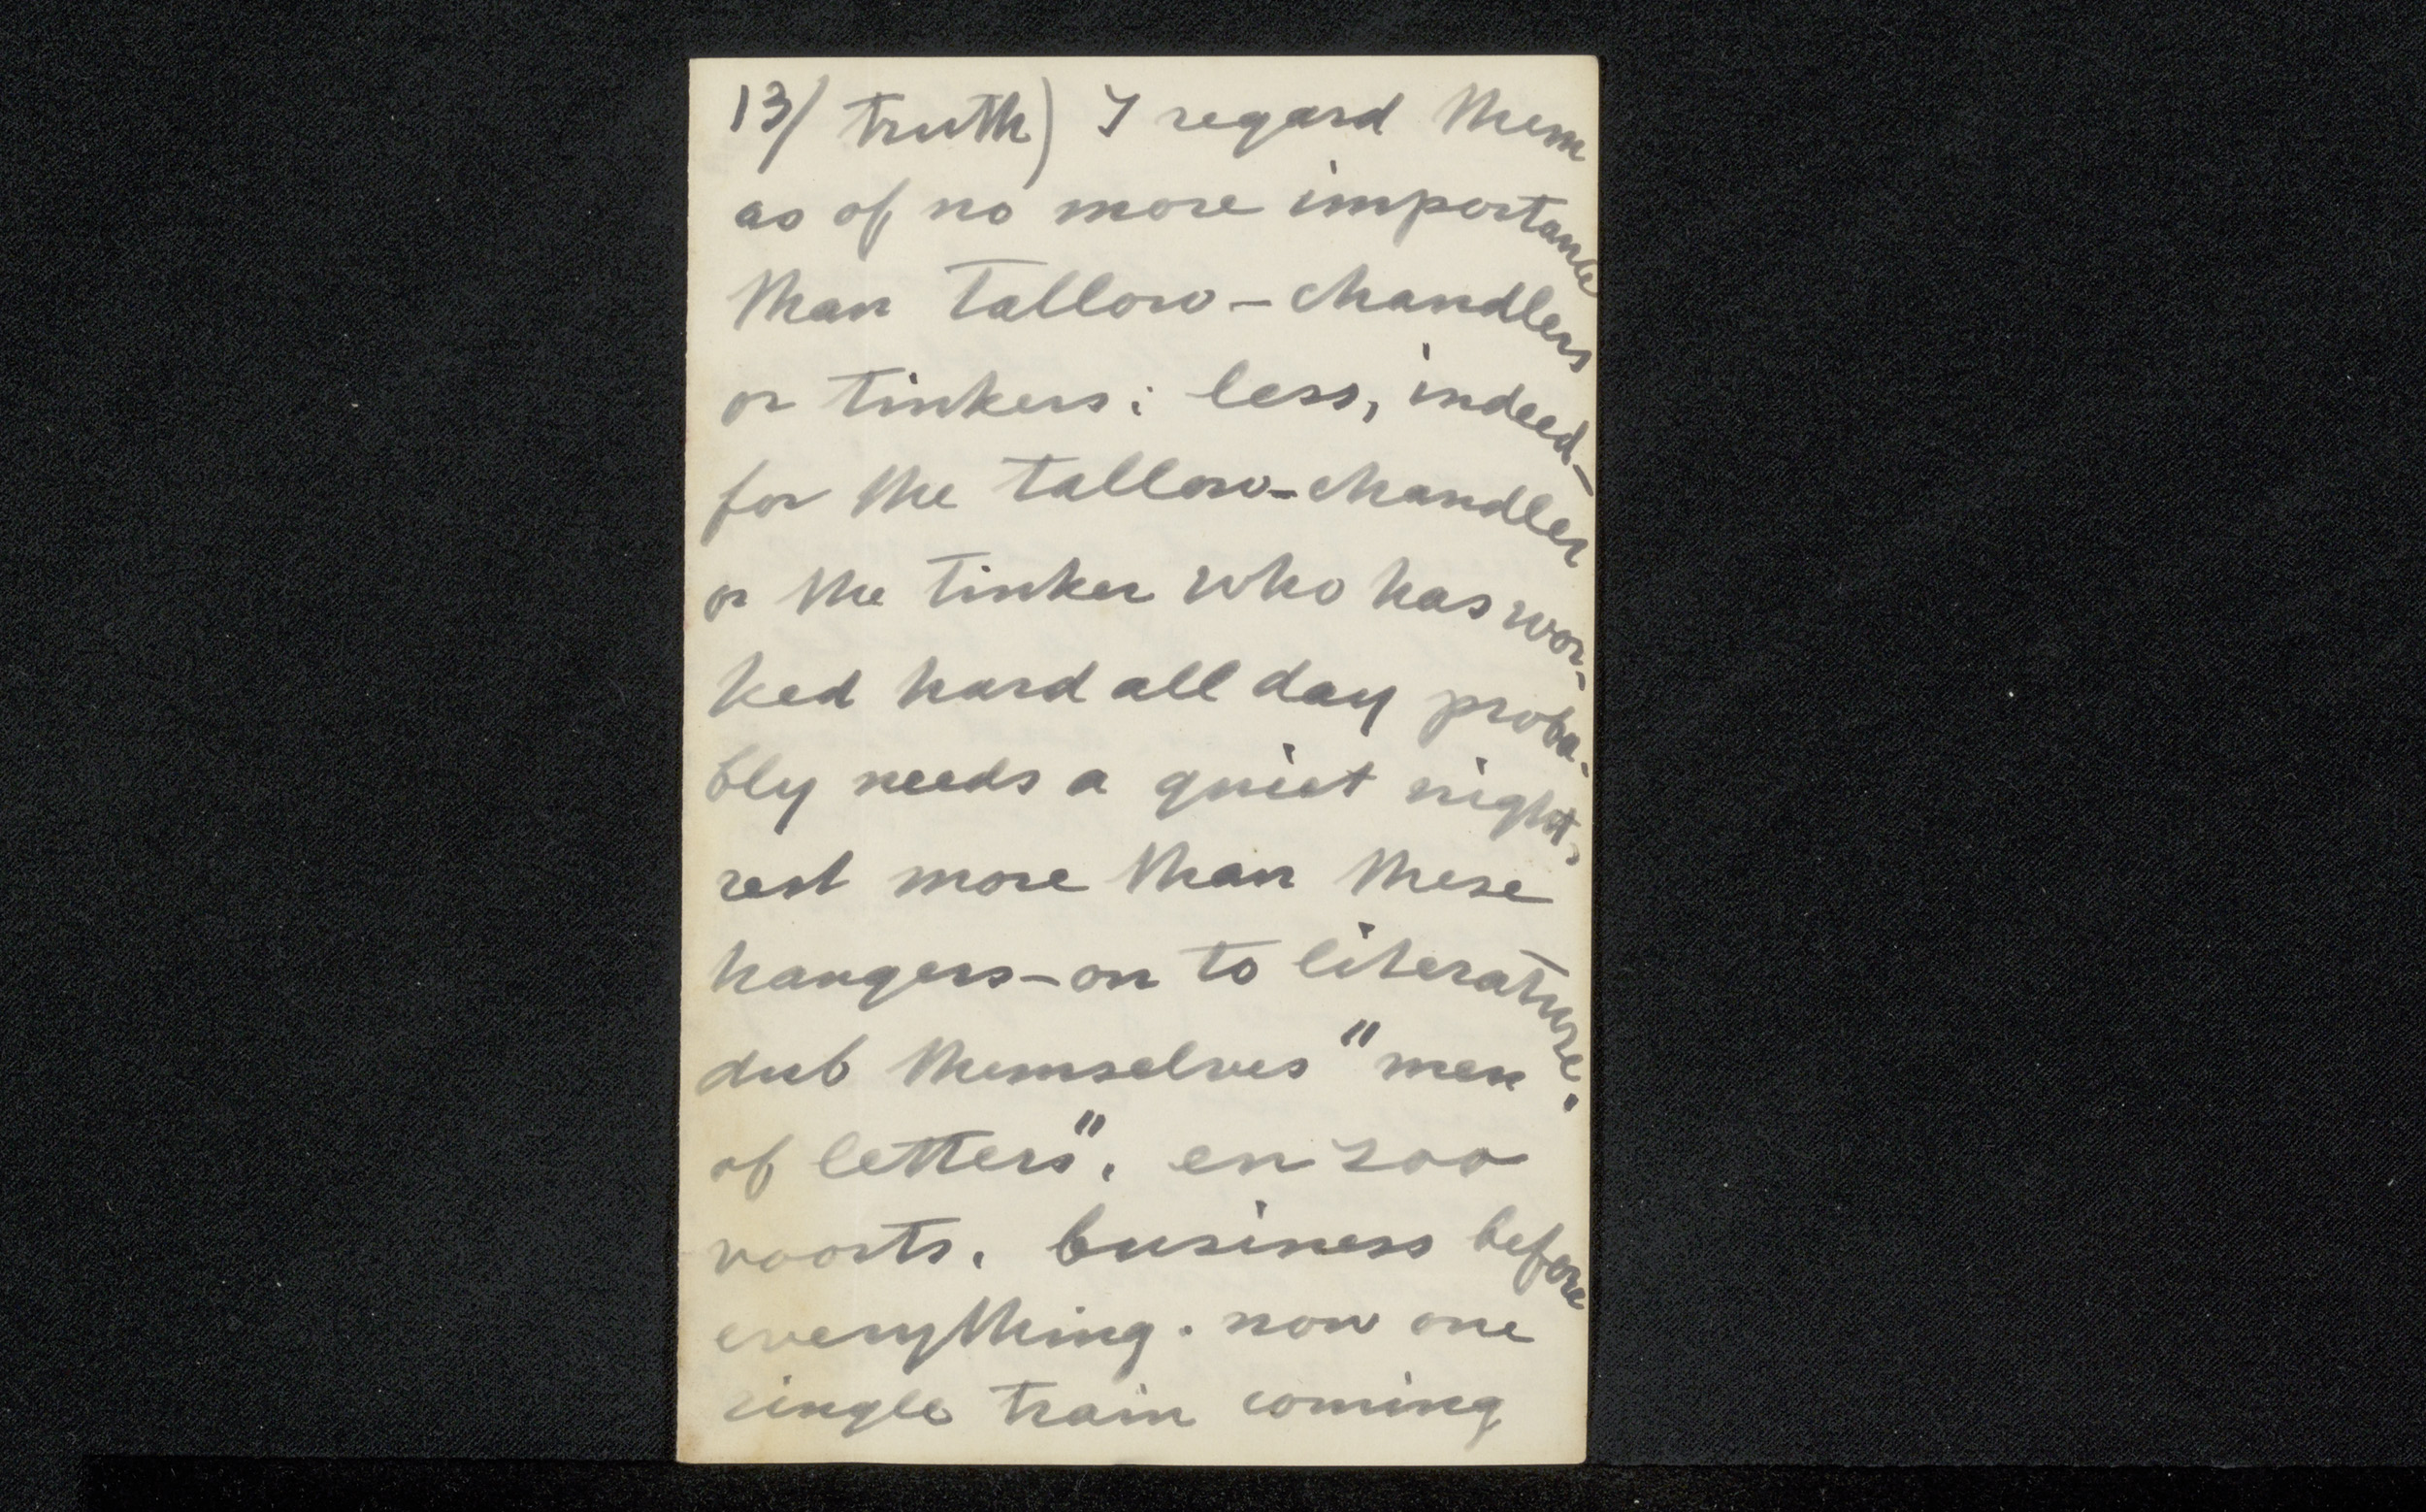 13/ truth) I regard them
as of no more importance
than tallow-chandlers
or tinkers: less, indeed—
for the tallow-chandler
or the tinker who has wor-
ked hard all day proba-
bly needs a quiet night's
rest more than these
hangers-on to literature.
dub themselves "men
of letters". en zoo
voorts. business before
everything. now one
single train coming